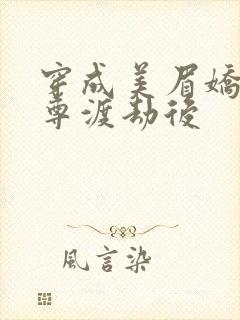 穿成美眉嬌
尊渡劫後
風言染